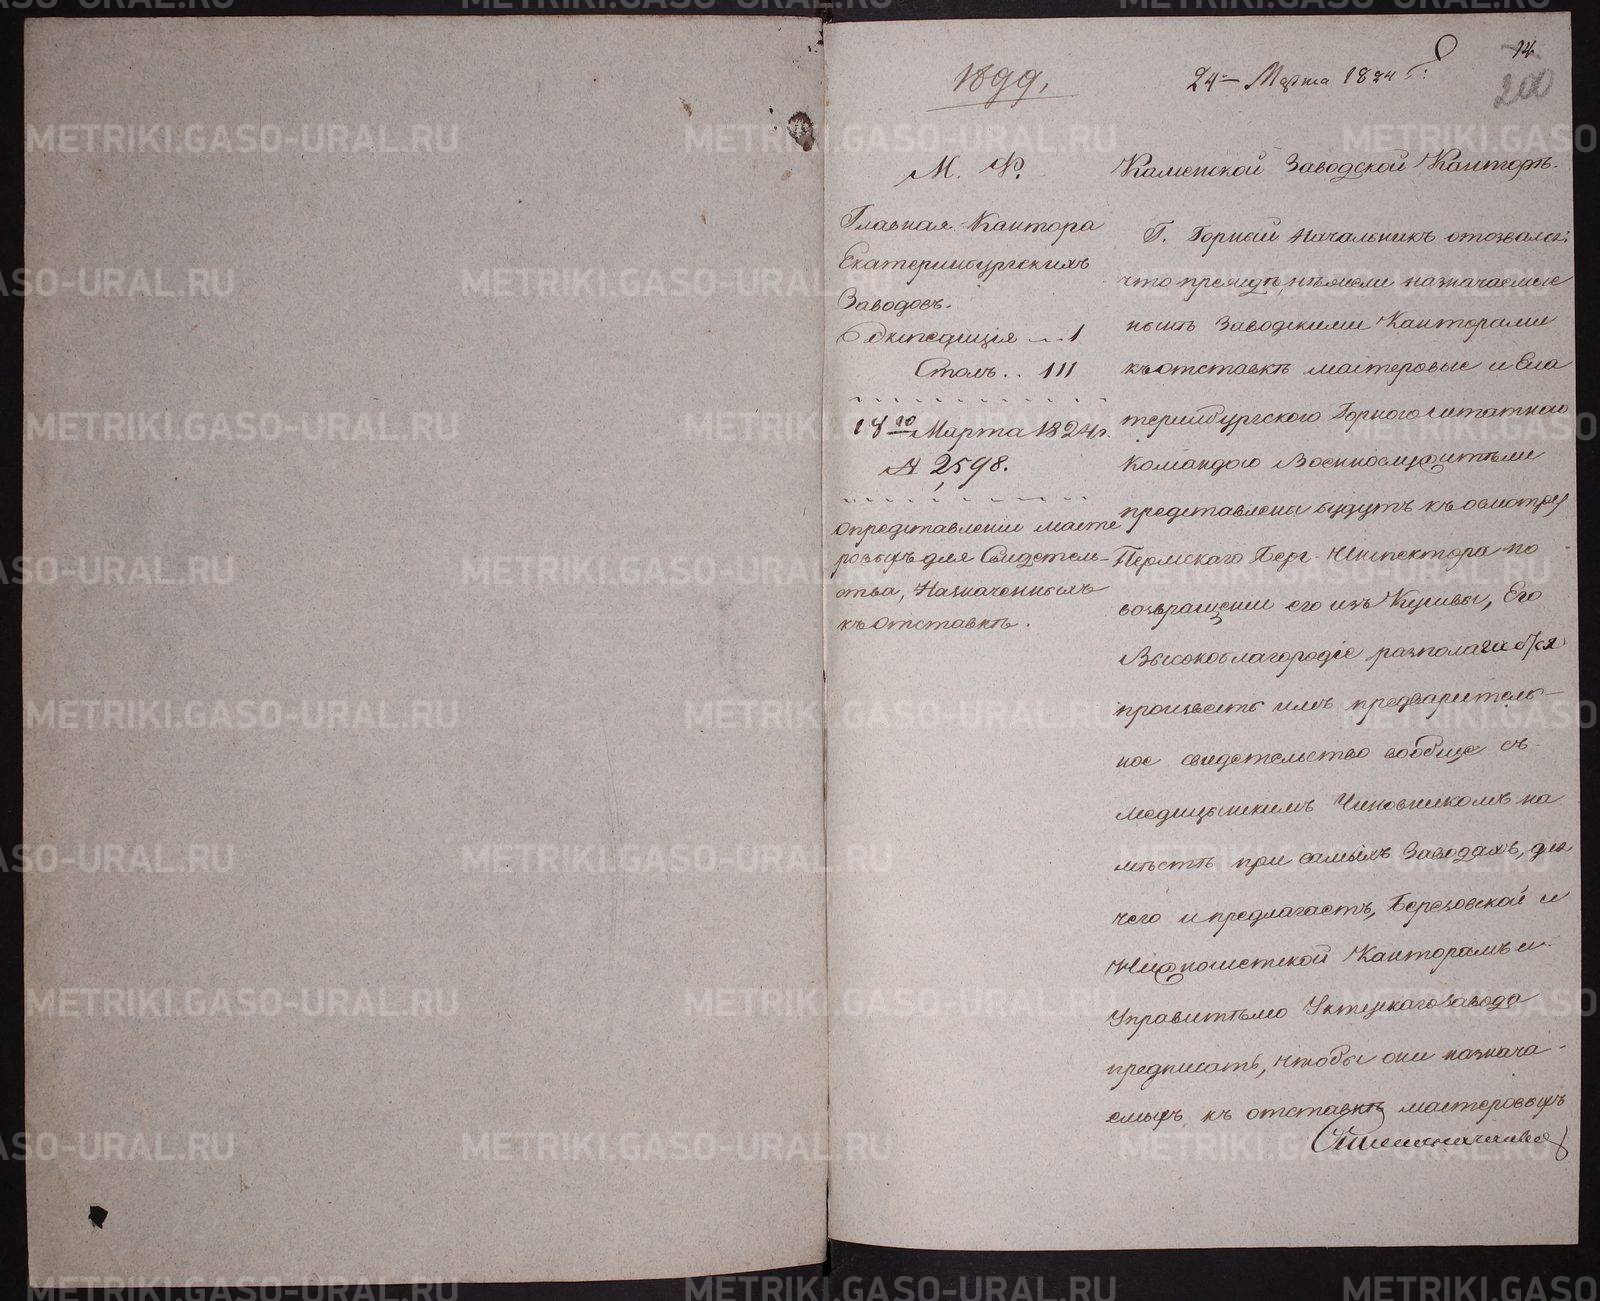 1899,
24 Марта 1824
14
200
М. Ф.
Главная Кантора
Екатеринбургскихъ
Заводовъ.
Экспедиція 1
Столъ.. III
18го Марта 1824 г.
№ 2598.
О представлении масте
ровыхъ для Свидетель-
ства, Назначенныхъ
къ отставкѣ.
Каменской Заводской Канторѣ.
Г. Горный Начальникъ отозвался,
что прежде, нежели назначаемые
нынѣ Заводскими Канторами
къ отставкѣ мастеровые и Ека
теринбургского Горного Штатною
командою Военнослужители
представлены будутъ къ осмотру
Пермскаго Берг-Инспектора по
возвращении его изъ Кушвы, Его
Высокоблагородіе располагается
произвесть имъ предваритель-
ное свидетельство вообще съ
Медицынскимъ Чиновникомъ на
мѣстѣ при самыхъ Заводахъ, для
чего и предлагаетъ, Березовской и
Нижноисетской Канторамъ и
Управителю Уктускаго завода
предписать, чтобы они назнача-
емыхъ къ отставкѣ мастеровыхъ
METRIKI.GASO-URAL.RU